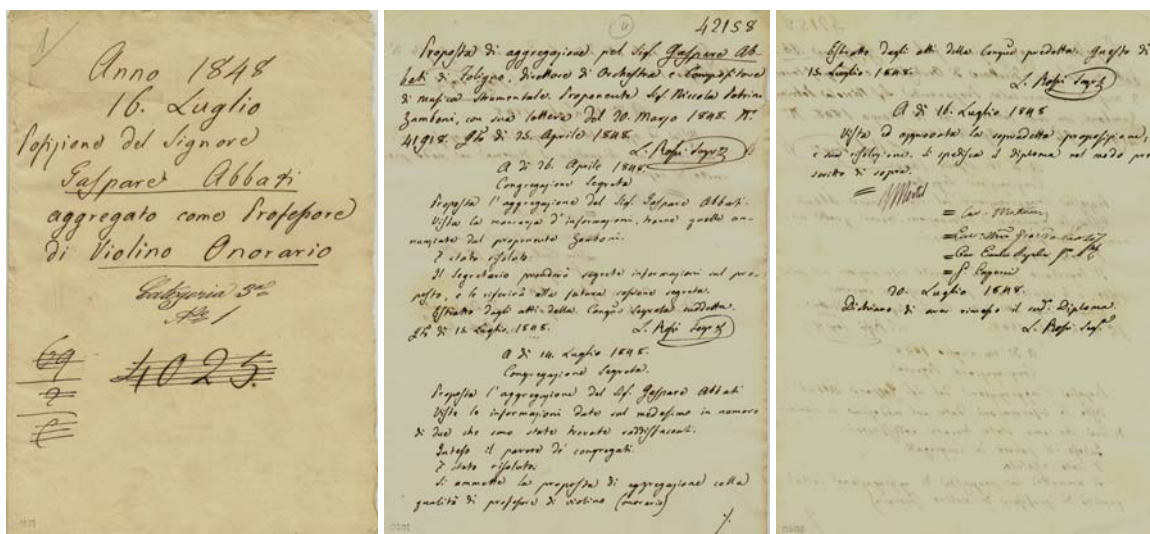 Anno 1848
16. Luglio
Posizione del Signore
Gaspare Abbati
aggregato come Professore
di Violino Onorario
Categoria 3ª
N° 1
69
4025.
42158
Proposta di aggregazione pel Sigʳ Gaspare Ab-
bati di Foligno, Direttore di Orchestra e Compositore
di Musica Stromentale. Proponente Sigʳ Niccola Petrini
Zamboni, con sua lettera del 20. Marzo 1848. N°
41918. di 25. Aprile 1848.
L. Rossi Segrº
A di 26. Aprile 1848.
Congregazione Segreta
Proposta l'aggregazione del Sigʳ Gaspare Abbati.
Vista la mancanza d'informazioni, meno quelle an-
nunziate dal proponente Zamboni.
È stato risoluto.
Il Segretario prenderà segrete informazioni sul pro-
posto, e le riferirà alla futura sessione segreta.
Estratto dagli atti della Congne Segreta suddetta.
di 13. Luglio 1848. L. Rossi Segrº
A di 14. Luglio 1848.
Congregazione Segreta.
Proposta l'aggregazione del Sigʳ Gaspare Abbati
Viste le informazioni date sul medesimo in numero
di due che sono state trovate soddisfacenti.
Inteso il parere de' congregati.
È stato risoluto:
Si ammette la proposta di aggregazione colla
qualità di professore di violino (onorario)
Estratto dagli atti della Congne predetta. Questo dì
15. Luglio 1848.
L. Rossi Segrº
A di 16. Luglio 1848
Vista ed approvata la sopradetta proposizione,
e sua risoluzione, si spedisca il diploma nel modo pre-
scritto di sopra.
= G. Capocci
20. Luglio 1848.
Dichiaro di aver rimesso il sudº Diploma.
L. Rossi Segº